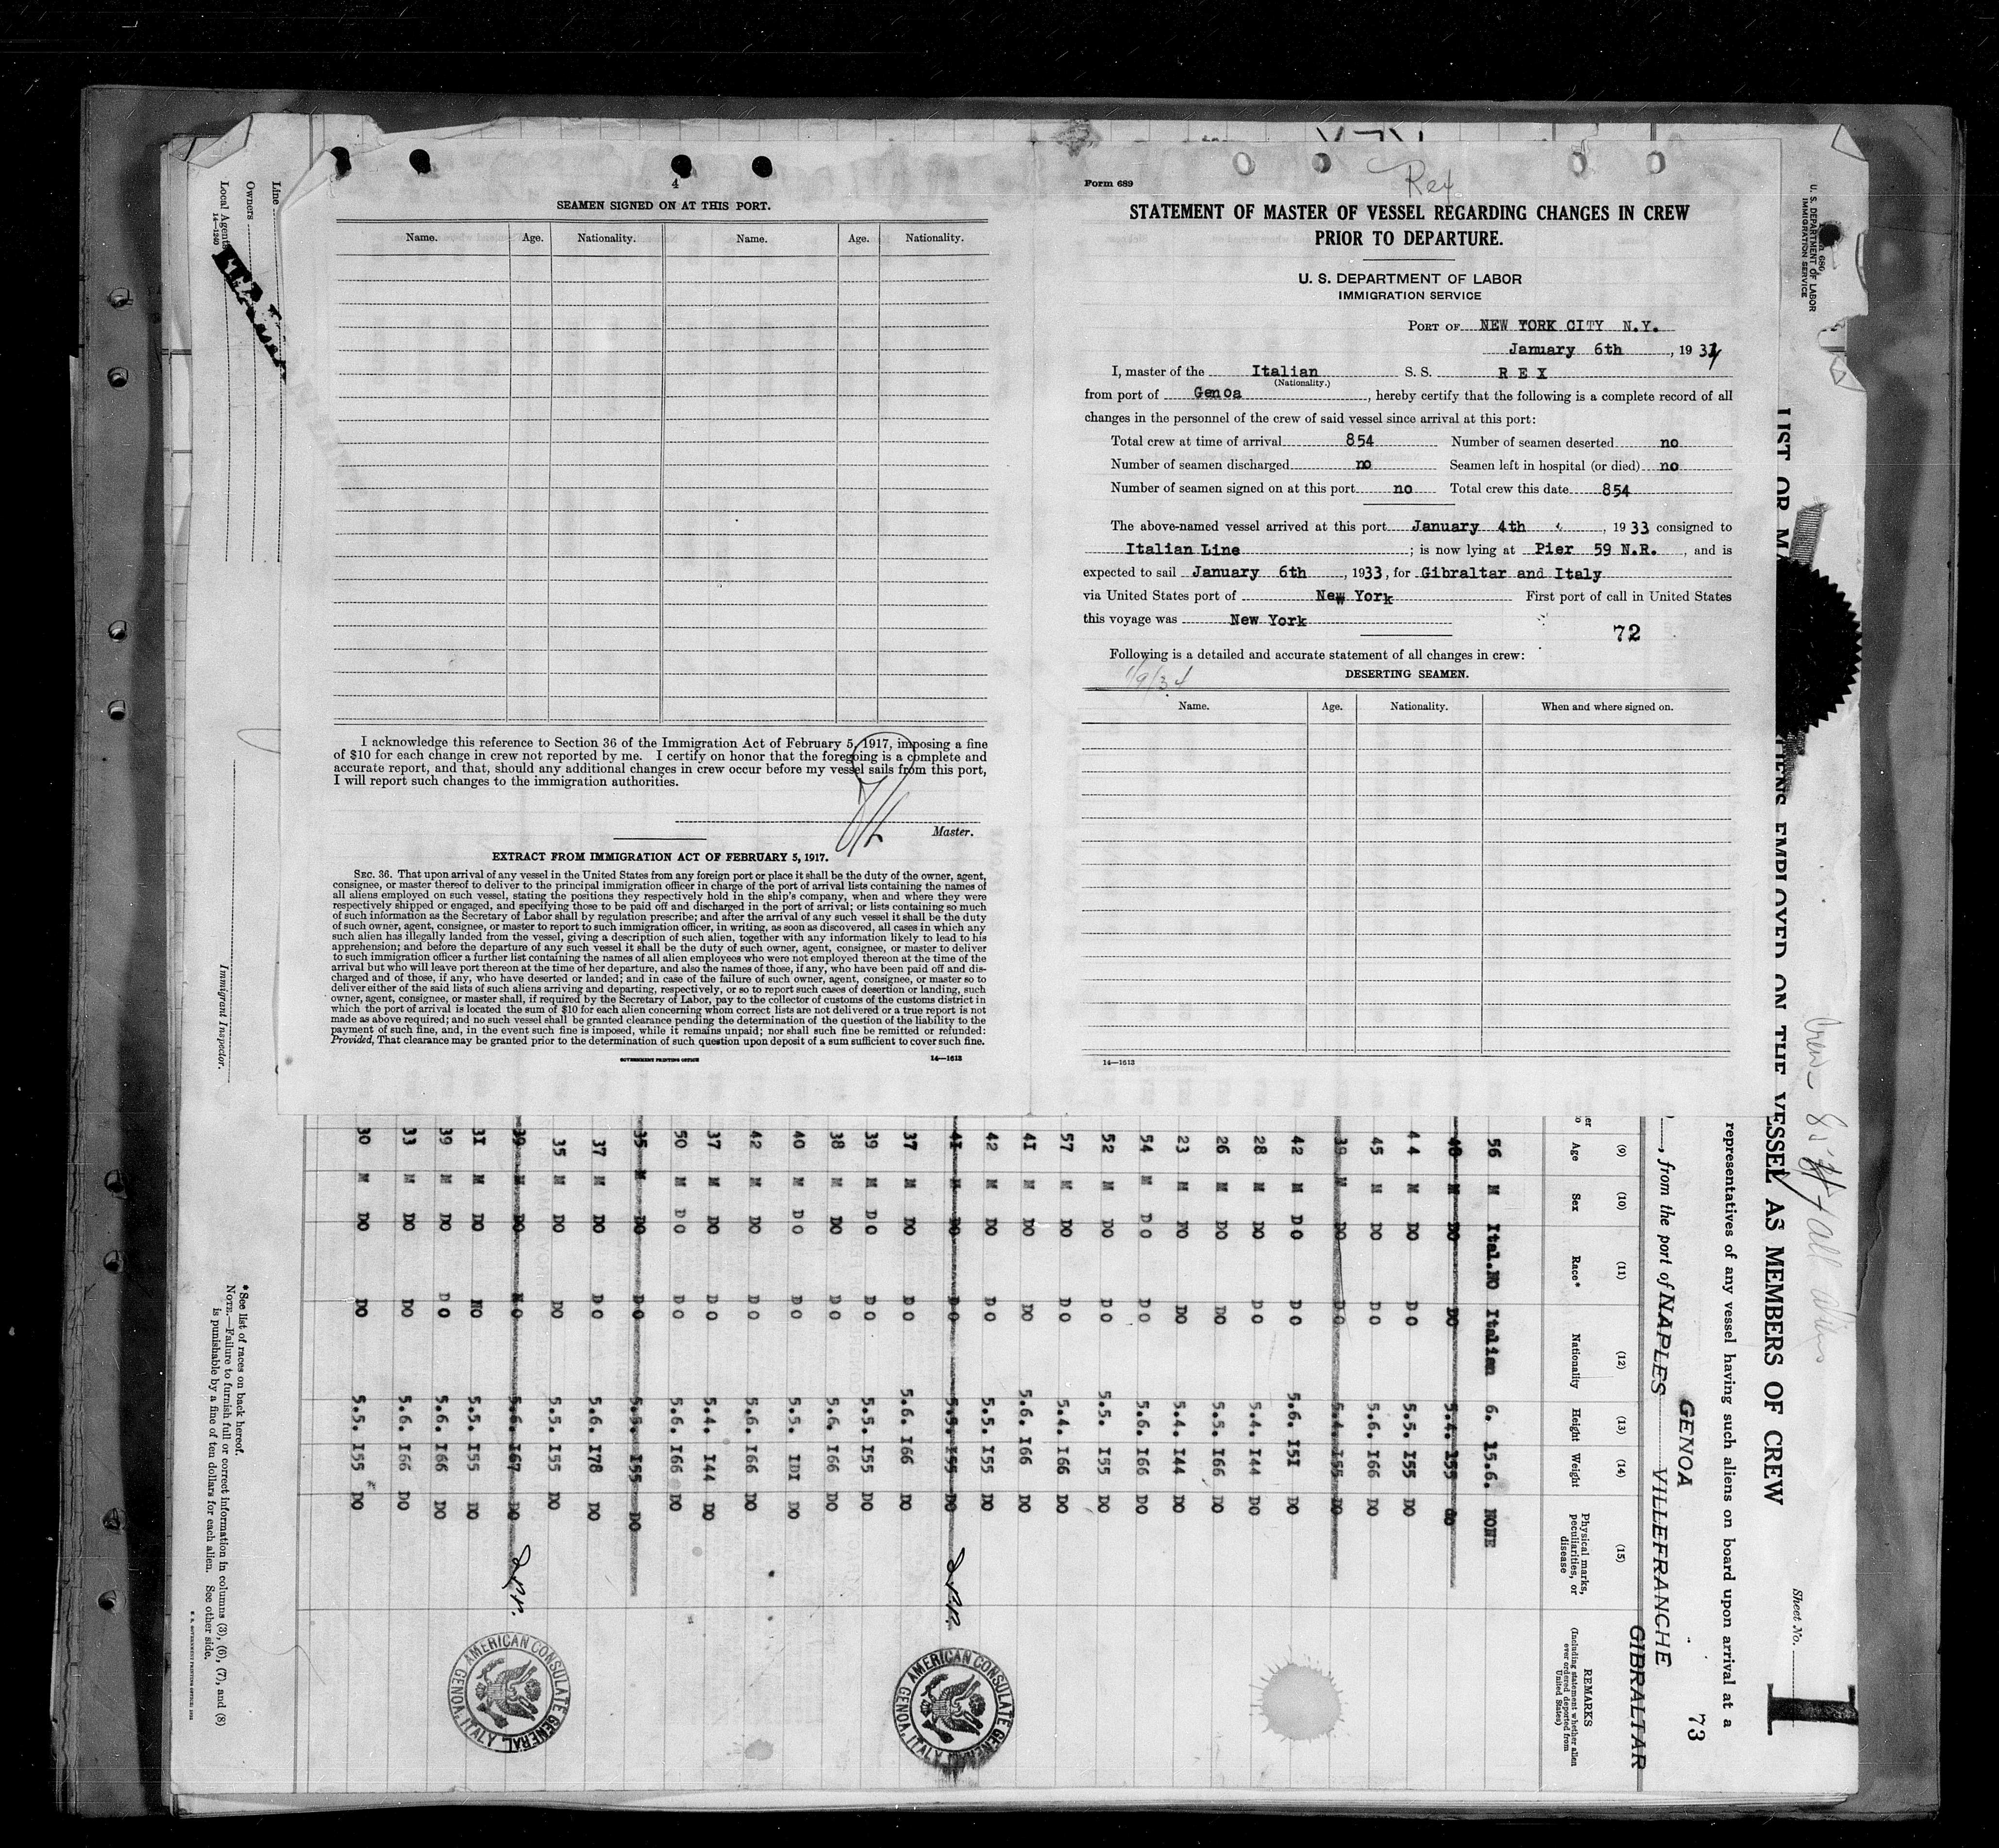 4
SEAMEN SIGNED ON AT THIS PORT.
Name. Age. Nationality. Name. Age. Nationality.
I acknowledge this reference to Section 36 of the Immigration Act of February 5, 1917, imposing a fine
of $10 for each change in crew not reported by me. I certify on honor that the foregoing is a complete and
accurate report, and that, should any additional changes in crew occur before my vessel sails from this port,
I will report such changes to the immigration authorities.
Master.
EXTRACT FROM IMMIGRATION ACT OF FEBRUARY 5, 1917.
SEC. 36. That upon arrival of any vessel in the United States from any foreign port or place it shall be the duty of the owner, agent,
consignee, or master thereof to deliver to the principal immigration officer in charge of the port of arrival lists containing the names of
all aliens employed on such vessel, stating the positions they respectively hold in the ship's company, when and where they were
respectively shipped or engaged, and specifying those to be paid off and discharged in the port of arrival; or lists containing so much
of such information as the Secretary of Labor shall by regulation prescribe; and after the arrival of any such vessel it shall be the duty
of such owner, agent, consignee, or master to report to such immigration officer, in writing, as soon as discovered, all cases in which any
such alien has illegally landed from the vessel, giving a description of such alien, together with any information likely to lead to his
apprehension; and before the departure of any such vessel it shall be the duty of such owner, agent, consignee, or master to deliver
to such immigration officer a further list containing the names of all alien employees who were not employed thereon at the time of the
arrival but who will leave port thereon at the time of her departure, and also the names of those, if any, who have been paid off and dis-
charged and of those, if any, who have deserted or landed; and in case of the failure of such owner, agent, consignee, or master so to
deliver either of the said lists of such aliens arriving and departing, respectively, or so to report such cases of desertion or landing, such
owner, agent, consignee, or master shall, if required by the Secretary of Labor, pay to the collector of customs of the customs district in
which the port of arrival is located the sum of $10 for each alien concerning whom correct lists are not delivered or a true report is not
made as above required; and no such vessel shall be granted clearance pending the determination of the question of the liability to the
payment of such fine, and, in the event such fine is imposed, while it remains unpaid; nor shall such fine be remitted or refunded:
Provided, That clearance may be granted prior to the determination of such question upon deposit of a sum sufficient to cover such fine.
GOVERNMENT PRINTING OFFICE 14—1613
Form 689
Rex
STATEMENT OF MASTER OF VESSEL REGARDING CHANGES IN CREW
PRIOR TO DEPARTURE.
U. S. DEPARTMENT OF LABOR
IMMIGRATION SERVICE
PORT OF NEW YORK CITY N.Y.
January 6th, 1934
I, master of the Italian S. S. R E X
(Nationality.)
from port of Genoa, hereby certify that the following is a complete record of all
changes in the personnel of the crew of said vessel since arrival at this port:
Total crew at time of arrival 854 Number of seamen deserted no
Number of seamen discharged no Seamen left in hospital (or died) no
Number of seamen signed on at this port no Total crew this date 854
The above-named vessel arrived at this port January 4th, 1933 consigned to
Italian Line; is now lying at Pier 59 N.R., and is
expected to sail January 6th, 1933, for Gibraltar and Italy
via United States port of New York First port of call in United States
this voyage was New York
72
Following is a detailed and accurate statement of all changes in crew:
1/9/34
DESERTING SEAMEN.
Name. Age. Nationality. When and where signed on.
14—1613
U. S. DEPARTMENT OF LABOR
IMMIGRATION SERVICE
LIST OR MA
IENS EMPLOYED ON THE VESSEL AS MEMBERS OF CREW
Sheet No. I
representatives of any vessel having such aliens on board upon arrival at a
73
GENOA
, from the port of NAPLES VILLEFRANCHE GIBRALTAR
(9) (10) (11) (12) (13) (14) (15)
Age Sex Race* Nationality Height Weight Physical marks, peculiarities, or disease REMARKS
(Including statement whether alien ever ordered deported from United States)
56 M Ital.NO Italian 6. 15.6. NONE
40 M DO DO 5.4. 155 do
44 M DO DO 5.5. I55 DO
45 M DO DO 5.6. I66 DO
39 M DO DO 5.4. I55 DO
42 M DO DO 5.6. I5I DO
28 M DO DO 5.4. I44 DO
26 M DO DO 5.5. I66 DO
23 M DO DO 5.4. I44 DO
54 M DO DO 5.6. I66 DO
52 M DO DO 5.5. I55 DO
57 M DO DO 5.4. I66 DO
4I M DO DO 5.6. I66 DO
42 M DO DO 5.5. I55 DO
4I M DO DO 5.5. I55 DO
37 M DO DO 5.6. I66 DO
39 M DO DO 5.5. I55 DO
38 M DO DO 5.6. I66 DO
40 M DO DO 5.5. IDI DO
42 M DO DO 5.6. I66 DO
37 M DO DO 5.4. I44 DO
50 M DO DO 5.6. I66 DO
35 M DO DO 5.5. I55 DO
37 M DO DO 5.6. I78 DO
35 M DO DO 5.5. I55 DO
39 M DO DO 5.6. I67 DO
3I M DO NO 5.5. I55 DO
39 M DO DO 5.6. I66 DO
33 M DO DO 5.6. I66 DO
30 M DO DO 5.5. I55 DO
AMERICAN CONSULATE GENERAL
GENOA, ITALY
AMERICAN CONSULATE GENERAL
GENOA, ITALY
Line
Owners
Local Agents
14—1240
Immigrant Inspector.
* See list of races on back hereof.
NOTE.—Failure to furnish full or correct information in columns (3), (6), (7), and (8)
is punishable by a fine of ten dollars for each alien. See other side.